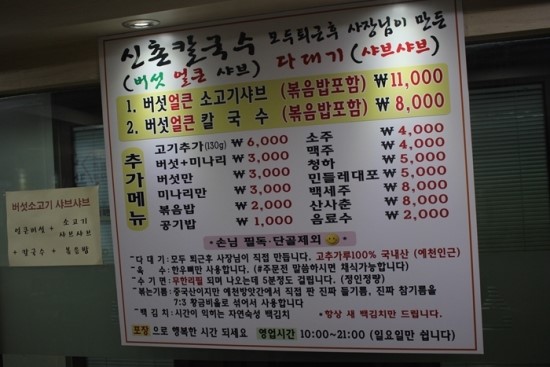 신촌칼국수 모두퇴근후 사장님이 만든
(버섯 얼큰 샤브) 다대기 (샤브샤브)
1. 버섯얼큰 소고기샤브 (볶음밥포함) ₩ 11,000
2. 버섯얼큰 칼 국 수 (볶음밥포함) ₩ 8,000
추가메뉴
고기추가(130g) ₩ 6,000
버섯+미나리 ₩ 3,000
버섯만 ₩ 3,000
미나리만 ₩ 3,000
볶음밥 ₩ 2,000
공기밥 ₩ 1,000
소주 ₩ 4,000
맥주 ₩ 4,000
청하 ₩ 5,000
민들레대포 ₩ 5,000
백세주 ₩ 8,000
산사춘 ₩ 8,000
음료수 ₩ 2,000
·손님 필독·단골제외
·다 대 기: 모두 퇴근후 사장님이 직접 만듭니다. 고추가루100% 국내산 (예천인근)
·육 수: 한우뼈만 사용합니다. (#주문전 말씀하시면 채식가능합니다)
·수 기 면: 무한리필 되며 나오는데 5분정도 걸립니다. (정인정량)
·볶는기름: 중국산이지만 예천방앗간에서 직접 짠 진짜 들기름, 진짜 참기름을
7:3 황금비율로 섞어서 사용합니다
·백 김 치: 시간이 익히는 자연숙성 백김치 *항상 새 백김치만 드립니다.
포장 으로 행복한 시간 되세요 영업시간 10:00~21:00 (일요일만 쉽니다)
버섯소고기 샤브샤브
얼큰버섯 + 소고기
샤브샤브
+ 칼국수 + 볶음밥